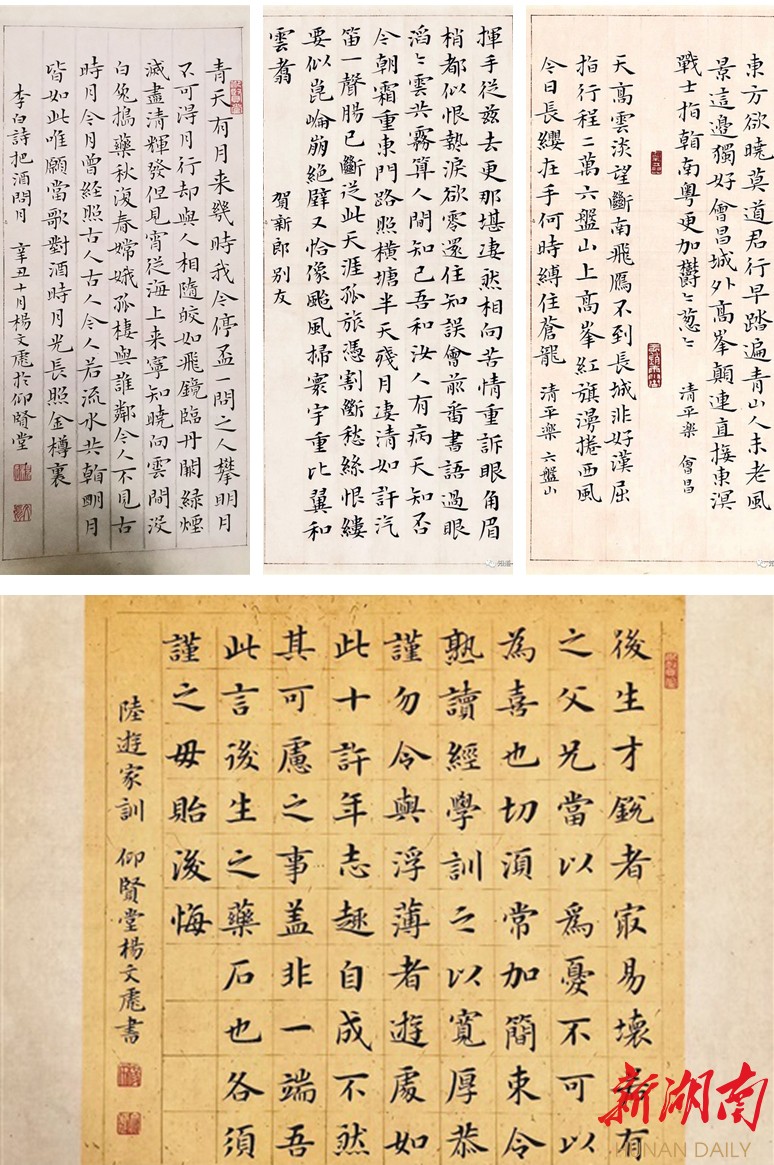 青天有月来幾時我今停盃一問之人攀明月
不可得月行却與人相隨皎如飛鏡臨丹闕緑煙
滅盡清輝發但見宵從海上来寧知曉向雲間没
白兔搗藥秋復春嫦娥孤棲與誰鄰今人不見古
時月今月曾經照古人古人今人若流水共翰朙月
皆如此唯願當歌對酒時月光長照金樽裏
李白詩把酒問月 辛丑十月楊文彪於仰賢堂
揮手從兹去更那堪凄然相向苦情重訴眼角眉
梢都似恨熱淚欲零還住知誤會前番書語過眼
滔〻雲共霧算人間知己吾和汝人有病天知否
今朝霜重東門路照横塘半天殘月凄清如許汽
笛一聲腸已斷從此天涯孤旅憑割斷愁絲恨縷
要似崑崙崩絶壁又恰像颱風掃寰宇重比翼和
雲翥
賀新郎别友
東方欲曉莫道君行早踏遍青山人未老風
景這邊獨好會昌城外高峯顛連直接東溟
戰士指翰南粵更加鬱〻葱〻 清平樂 會昌
天高雲淡望斷南飛鴈不到長城非好漢屈
指行程二萬六盤山上高峯紅旗漫捲西風
今日長纓在手何時縛住蒼龍 清平樂 六盤山
後生才鋭者冣易壞若有
之父兄當以爲憂不可以
為喜也切須常加簡束令
熟讀經學訓之以寬厚恭
謹勿令與浮薄者遊處如
此十許年志趣自成不然
其可慮之事盖非一端吾
此言後生之藥石也各須
謹之毋貽後悔
陸遊家訓 仰賢堂楊文彪書
新湖南
HUNAN DAILY